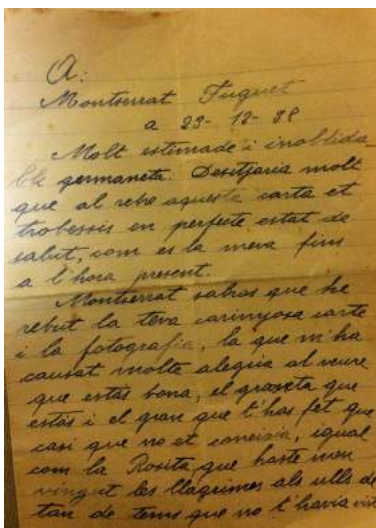 A:
Montserrat Fuguet
a 23-12-38
Molt estimade i inoblida_
ble germaneta: Desitjaria molt
que al rebre aquesta carta et
trobessis en perfecte estat de
salut, com es la meva fins
a l'hora present.
Montserrat sabras que he
rebut la teva carinyosa carte
i la fotografia, la que m'ha
causat molte alegria al veure
que estàs bona, el graseta que
estàs i el gran que t'has fet que
casi que no et coneixia, igual
com la Rosita, que haste men
vingut les llagrimes als ulls de
tan de tems que no t'havia vist